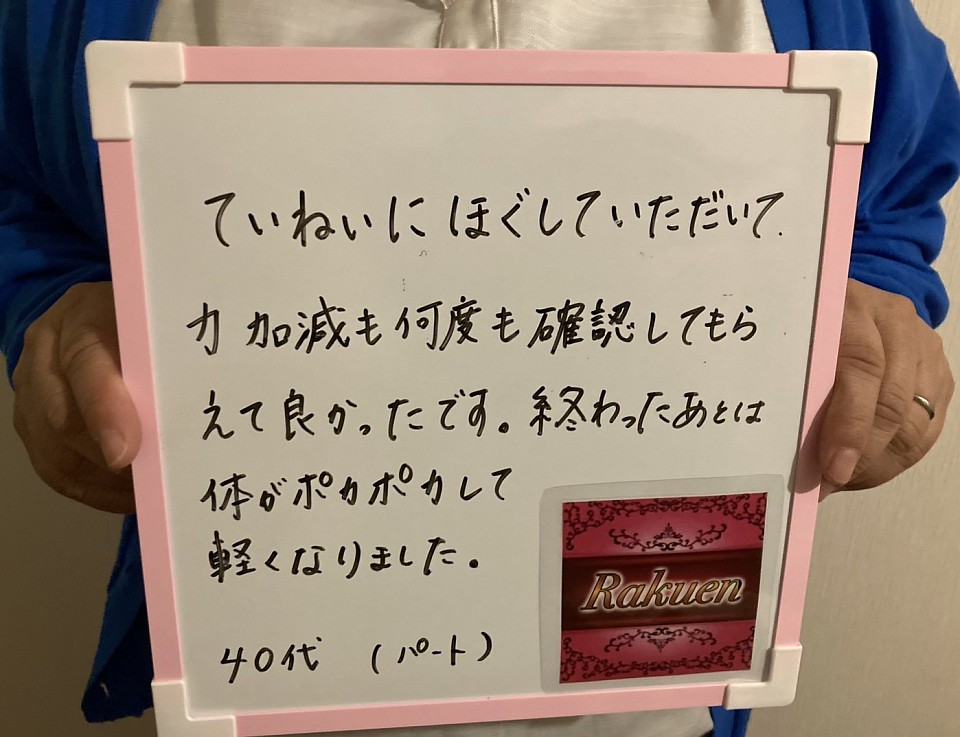 ていねいにほぐしていただいて.
力加減も何度も確認してもら
えて良かったです。終わったあとは
体がポカポカして
軽くなりました。
40代 (パート)
Rakuen